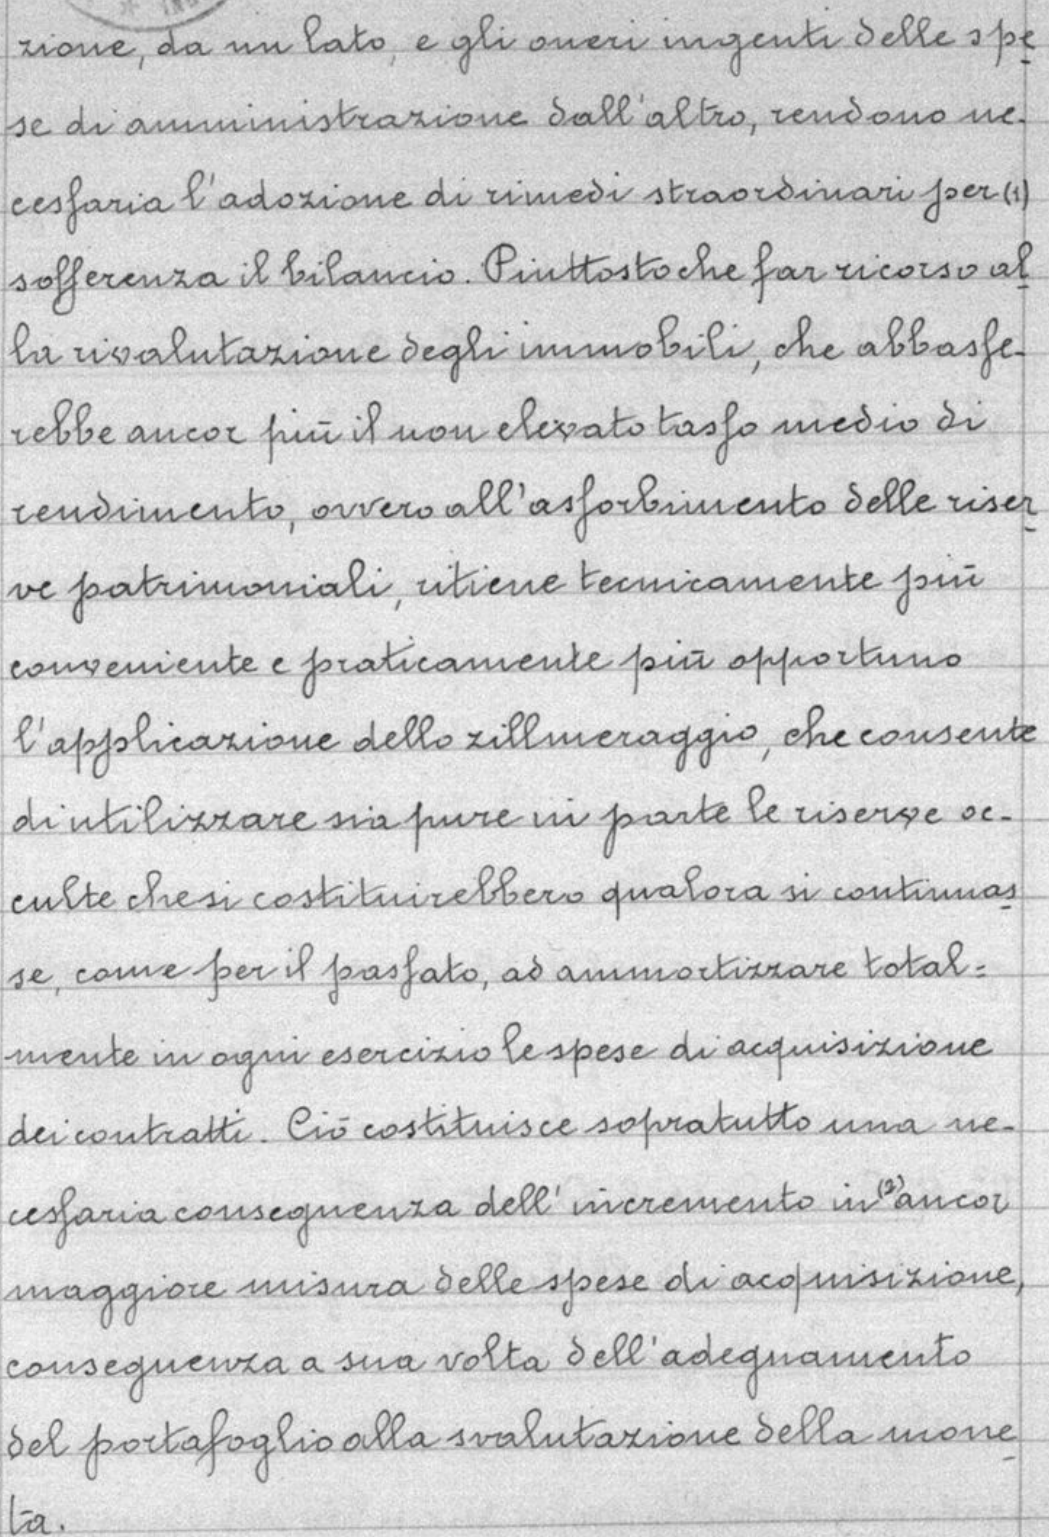 zione, da un lato, e gli oneri ingenti delle spe
se di amministrazione dall'altro, rendono ne-
cessaria l'adozione di rimedi straordinari per (1)
sofferenza il bilancio. Piuttosto che far ricorso al
la rivalutazione degli immobili, che abbasse-
rebbe ancor più il non elevato tasso medio di
rendimento, ovvero all'assorbimento delle riser
ve patrimoniali, ritiene tecnicamente più
conveniente e praticamente più opportuno
l'applicazione dello zillmeraggio, che consente
di utilizzare sia pure in parte le riserve oc-
culte che si costituirebbero qualora si continuas
se, come per il passato, ad ammortizzare total=
mente in ogni esercizio le spese di acquisizione
dei contratti. Ciò costituisce sopratutto una ne-
cessaria conseguenza dell'incremento in (2) ancor
maggiore misura delle spese di acquisizione,
conseguenza a sua volta dell'adeguamento
del portafoglio alla svalutazione della mone
ta.